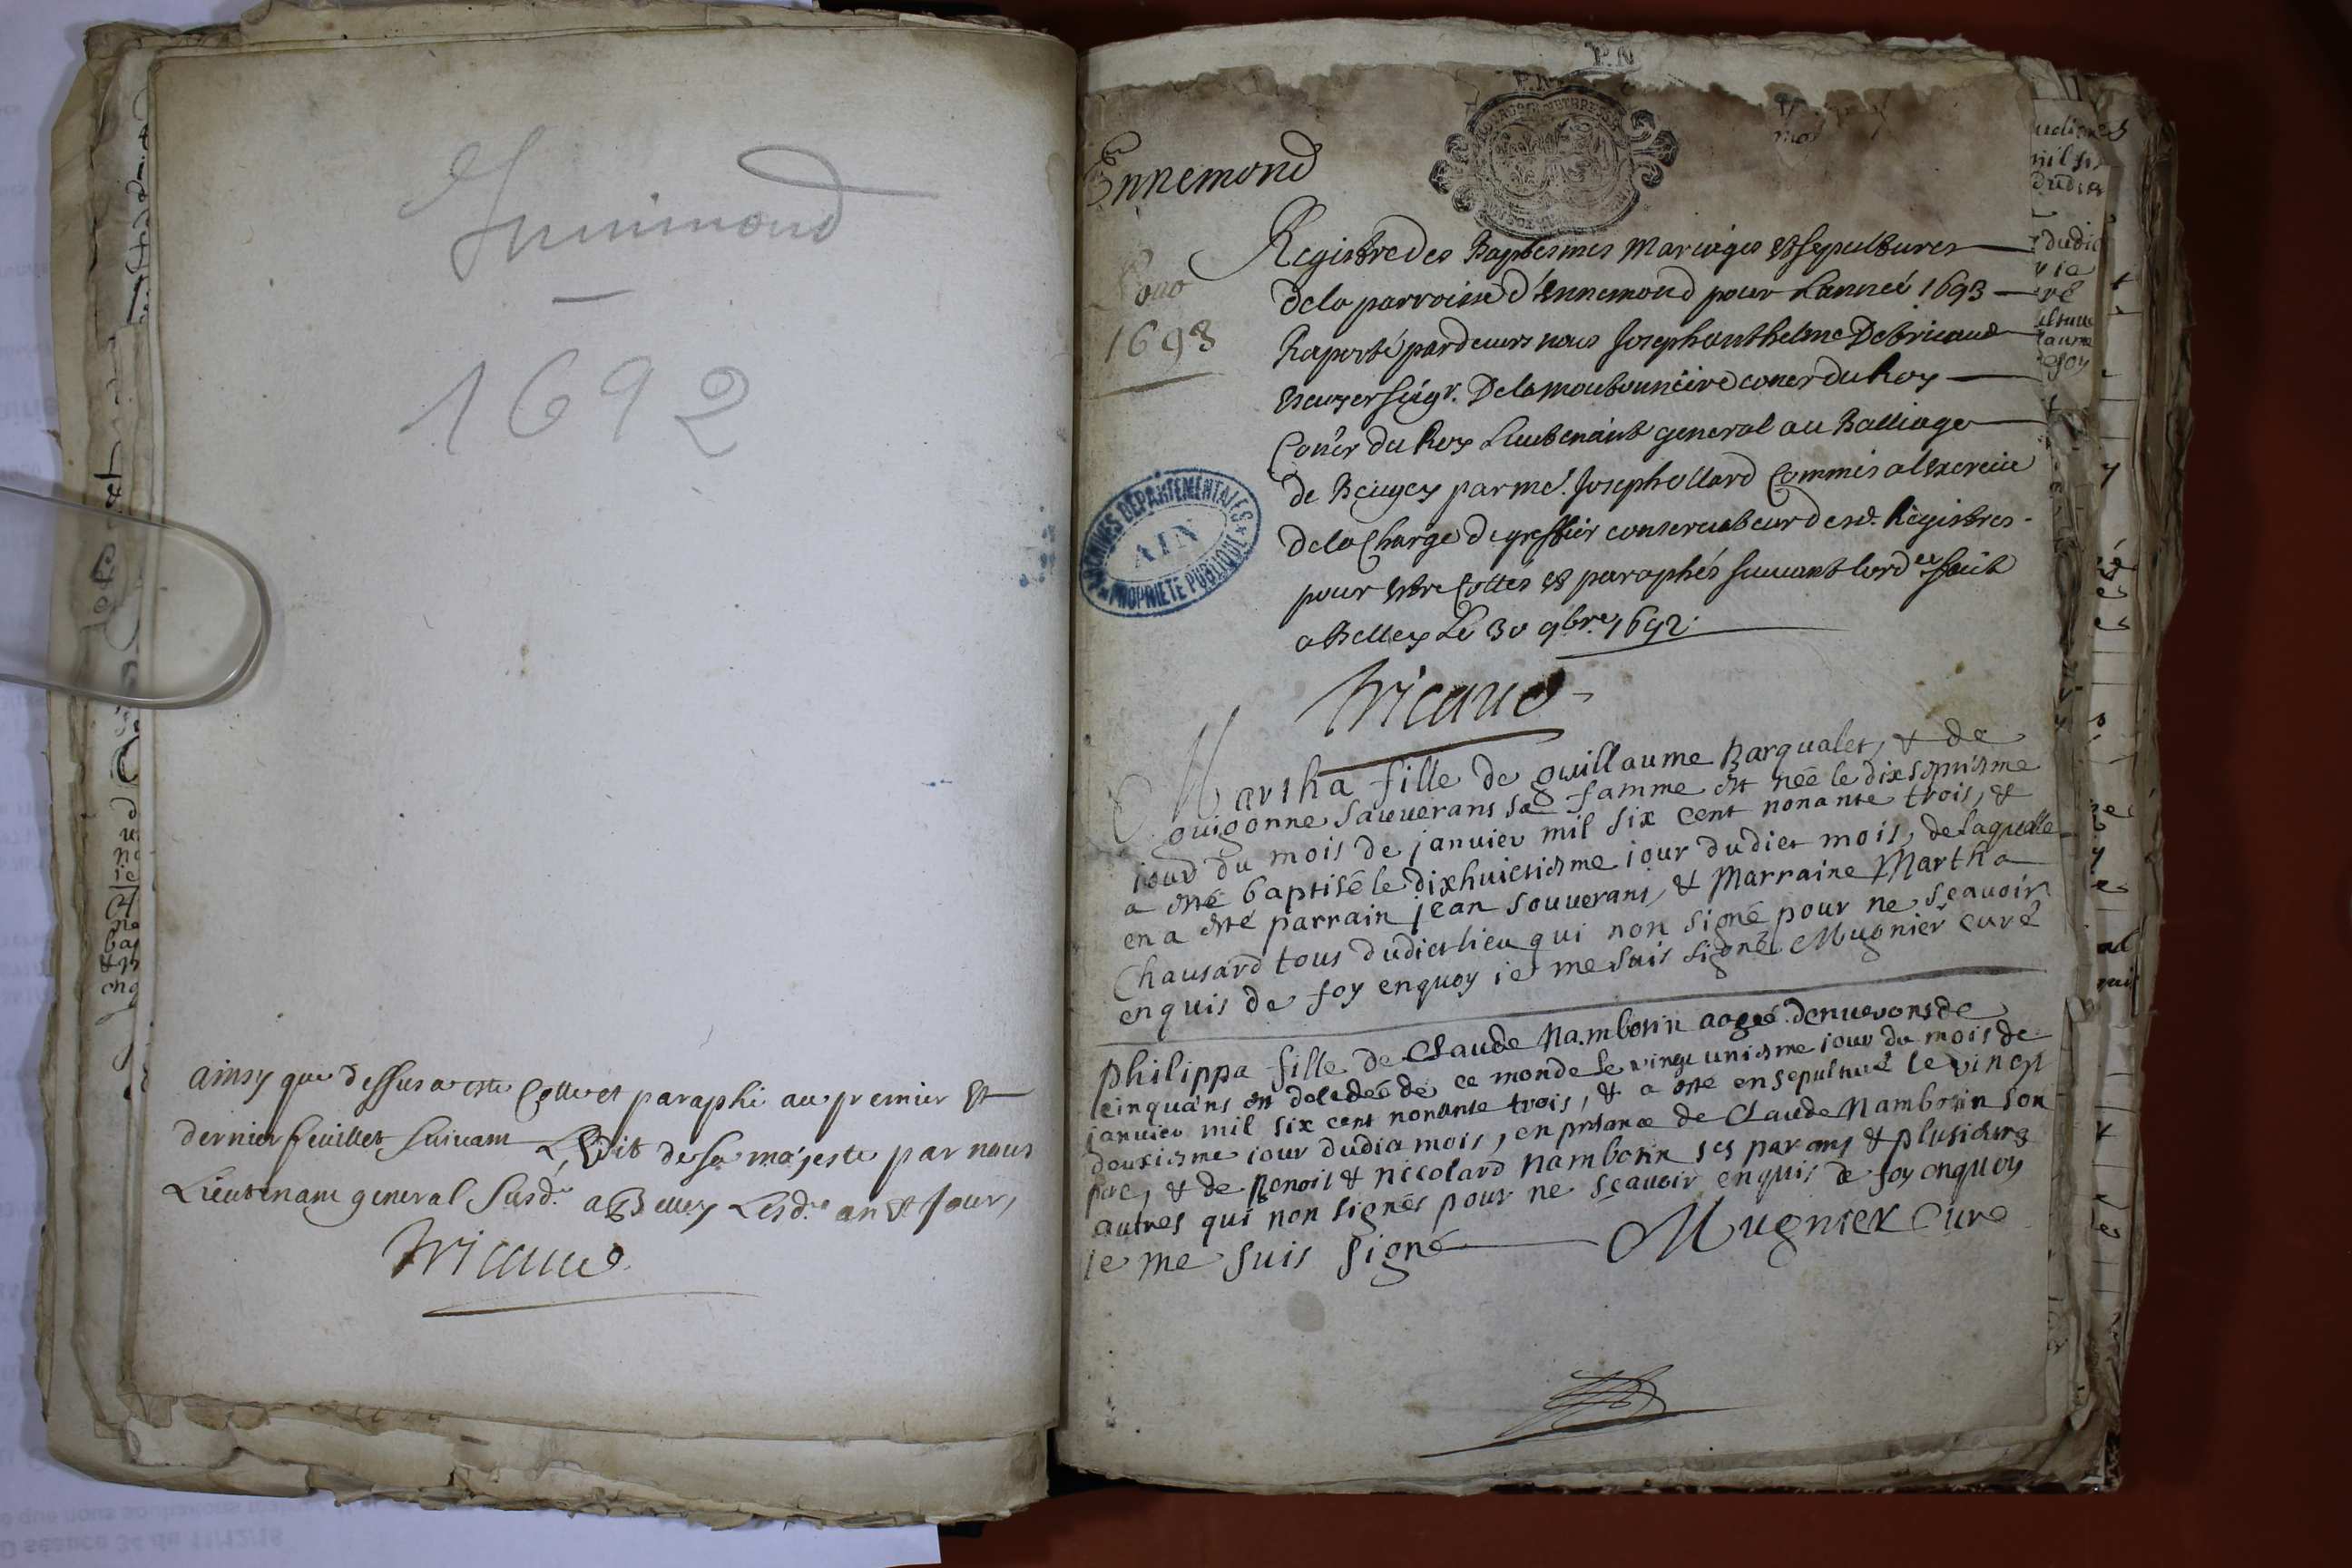 1692
ainsy que dessus a esté Cotté et paraphé au premier Et
dernier feuillet suivant L'Edit de sa majesté par nous
Lieutenant general susd. a Belley Lesd. an et jour,
Tricaud
P.N
Ennemond
Pour
1693
Registre des Baptesmes Mariages et sepultures
de la parroisse d'Ennemond pour L'année 1693
Raporté pardevers nous Joseph anthelme De tricaud
Escuyer seigr. De la
Coner du Roy Lieutenant general au Balliage
de Beugey par me. Joseph ollard Commis a l'Exercice
de la Charge de greffier conservateur desd. Registres
pour estre Cottés et paraphés suivant l'ord fait
a Belley Le 30 9bre. 1692.
Tricaud
ARCHIVES DEPARTEMENTALES
AIN
PROPRIETE PUBLIQUE
Martha fille de guillaume Barqualet, & de
guigonne Sauuerans sa famme est née le dixsetniesme
iour du mois de januier mil six cent nonante trois, &
a esté baptisé le dixhuictiesme iour dudict mois, de laqualle
en a esté parrain jean souuerans, & Marraine Martha
Chausard tous dudict lieu qui non signé pour ne sçauoir
enquis de foy enquoy ie me suis signé Mugnier curé
philippa fille de Claude Nambotin aagée denuerons de
cinquans est decedée de ce monde le vingt uniesme iour du mois de
januier mil six cent nonante trois, & a esté en sepulture le vingt
deuxiesme iour dudict mois, en presance de Claude Nambotin son
pere, & de Benoit & nicolard nambotin ses parans & plusieurs
autres qui non signés pour ne sçauoir enquis de foy enquoy
ie me suis signé Mugnier Curé